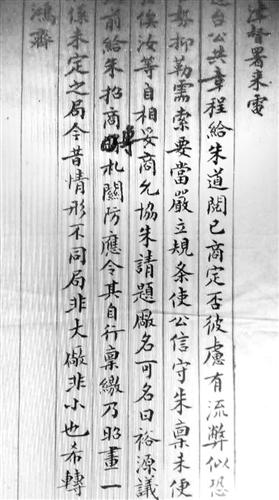 津督署来電
台公共章程給朱道閱已商定否彼慮有流弊似恐
毋抑勒需索要當嚴立規条使公信守朱稟未便
俟汝等自相妥商允協朱請題廠名可名曰裕源議
前給朱招商專札關防應令其自行稟繳乃昭畫一
係未定之局今昔情形不同局非大廠非小也希轉
鴻齋